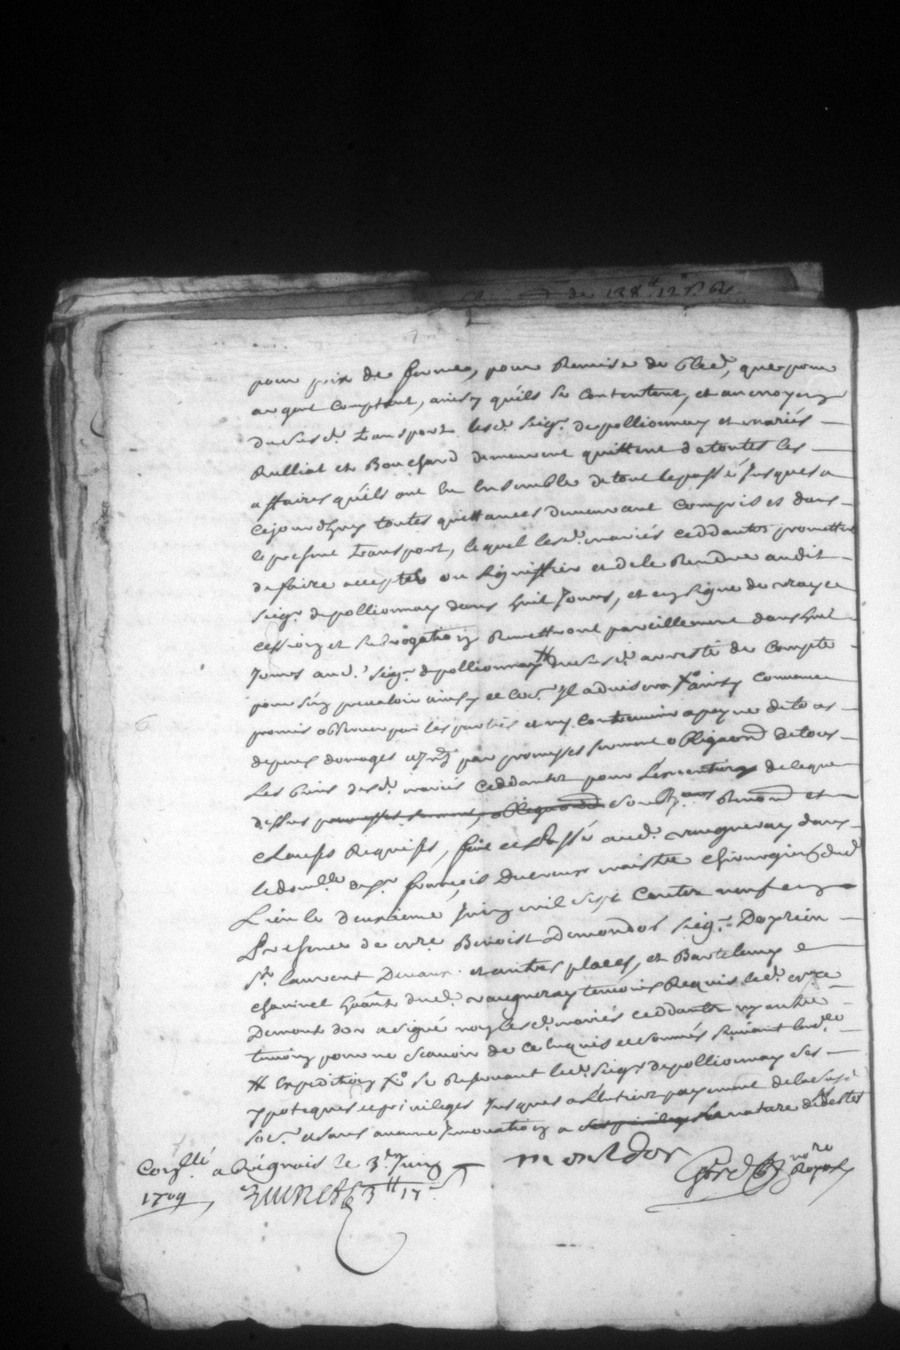 de 138ᵗᵗ 12ˢ 6ᵈ
pour prix de ferme, pour Remise de bled, que pour
argent comptant, ainsy quils se contentent, et au moyen
du susd. transport lesd. Seigr. de pollionnay et mariés
Rulliat et Bouchard demeurent quittent de toutes les
affaires quils ont eu Ensemble de tout le passé Jusques a
cejourdhuy toutes quittances demeurant Compris et dans
le present transport, lequel lesd. mariés ceddantes promettent
de faire accepter ou signiffier et de le Rendre audit
seigr. de pollionnay dans huit Jours, et en signe de vraye
cession et subrogation Remettront pareillement dans huit
Jours aud. seigr. de pollionnay # du susd. arresté de Compte
pour sen prevaloir ainsy et co. Il advisera xo ainsy convenu
promis observer par les parties et ny contrevenir a peyne de tous
depens domages par promesses serment obligaond de tous
Les biens desd. mariés ceddantes pour Lesecution de leque
dessus promesses serment, obligaond soubz aons Renond et
clauses Requises, fait et Passé aud. vaugneray dans
le domlle de sr françois Ducreux maistre chirurgien dud
Lieu le deuxieme Juin mil sept Centz neuf en
Presence de mre. Benoist Demondor seigr. Du
sr. laurent Devaux et autres places, et Bartelemy
chauinet dud. vaugneray temoins Requis led. mre
Demont dor a signé non lesd. mariés ceddantes ny autre
temoin pour ne scavoir de ce Enquis et sommés suivant lordce
# Expedition xo se Reservant led. Seigr de pollionnay ses
ypoteques et privileges Jusques a Lentier payement de la susd
soe. et sans aucune Innovation a ses privileges La nature
Conllé a Grignais le 3e Juin montdor
1709, 3ᵗᵗ 17ˢ nore Royal